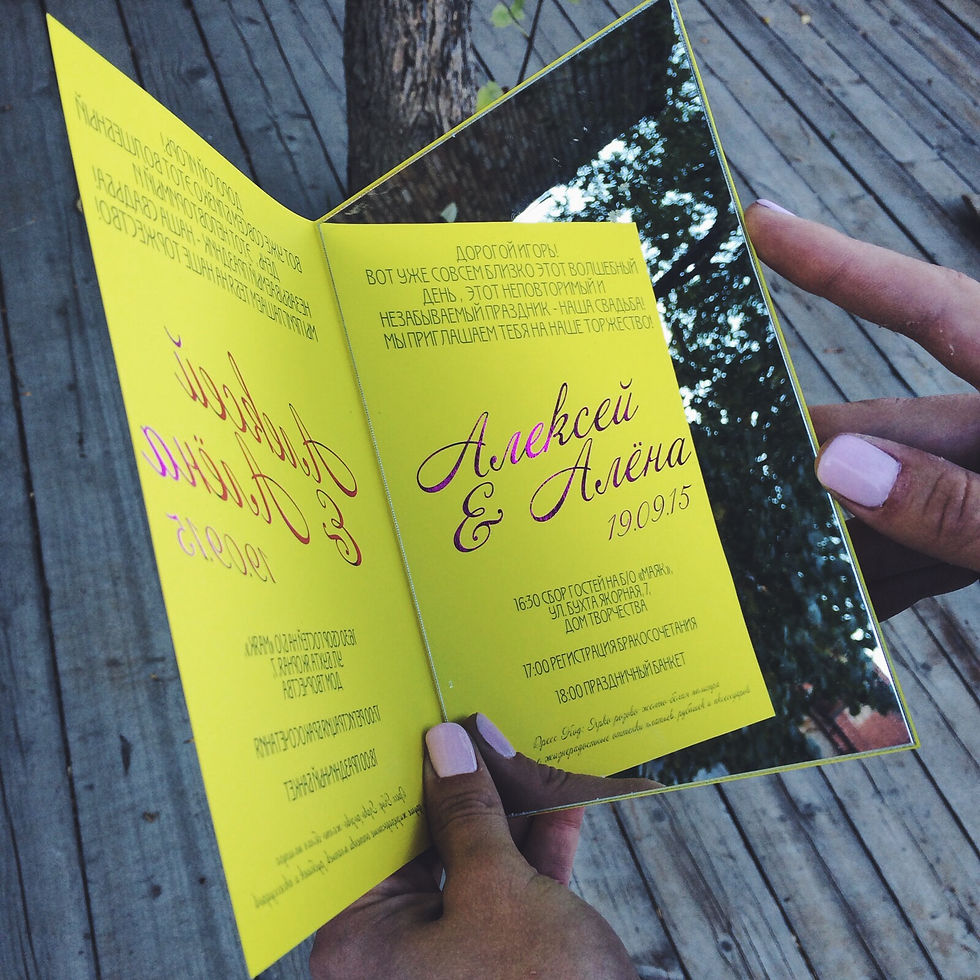 ДОРОГОЙ ИГОРЬ!
ВОТ УЖЕ СОВСЕМ БЛИЗКО ЭТОТ ВОЛШЕБНЫЙ
ДЕНЬ, ЭТОТ НЕПОВТОРИМЫЙ И
НЕЗАБЫВАЕМЫЙ ПРАЗДНИК - НАША СВАДЬБА!
МЫ ПРИГЛАШАЕМ ТЕБЯ НА НАШЕ ТОРЖЕСТВО!
Алексей
& Алёна
19.09.15
16:30 СБОР ГОСТЕЙ НА Б/О «МАЯК»,
УЛ. БУХТА ЯКОРНАЯ, 7,
ДОМ ТВОРЧЕСТВА
17:00 РЕГИСТРАЦИЯ БРАКОСОЧЕТАНИЯ
18:00 ПРАЗДНИЧНЫЙ БАНКЕТ
Дресс Код: Ярко розово-желто-белая палитра
и жизнерадостные оттенки платьев, рубашек и аксессуаров